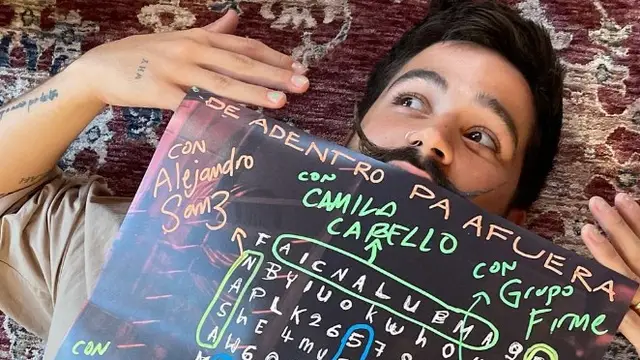 DE ADENTRO PA AFUERA
CON
Alejandro
Sanz
CON
CAMILA
CABELLO
CON
Grupo
Firme
F A I C N A L U B M A
N B Y I U O K W H O
A P L K 2 6 5
S h E 4 m
A
CON